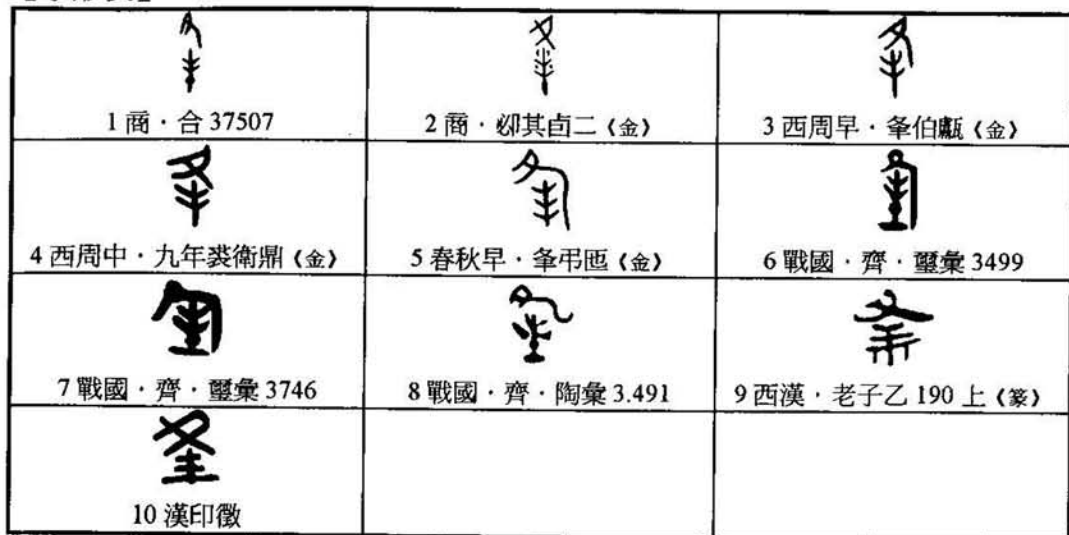 1 商．合 37507
2 商．𠨘其卣二《金》
3 西周早．夆伯甗《金》
4 西周中．九年裘衛鼎《金》
5 春秋早．夆弔匜《金》
6 戰國．齊．璽彙 3499
7 戰國．齊．璽彙 3746
8 戰國．齊．陶彙 3.491
9 西漢．老子乙 190 上《篆》
10 漢印徵